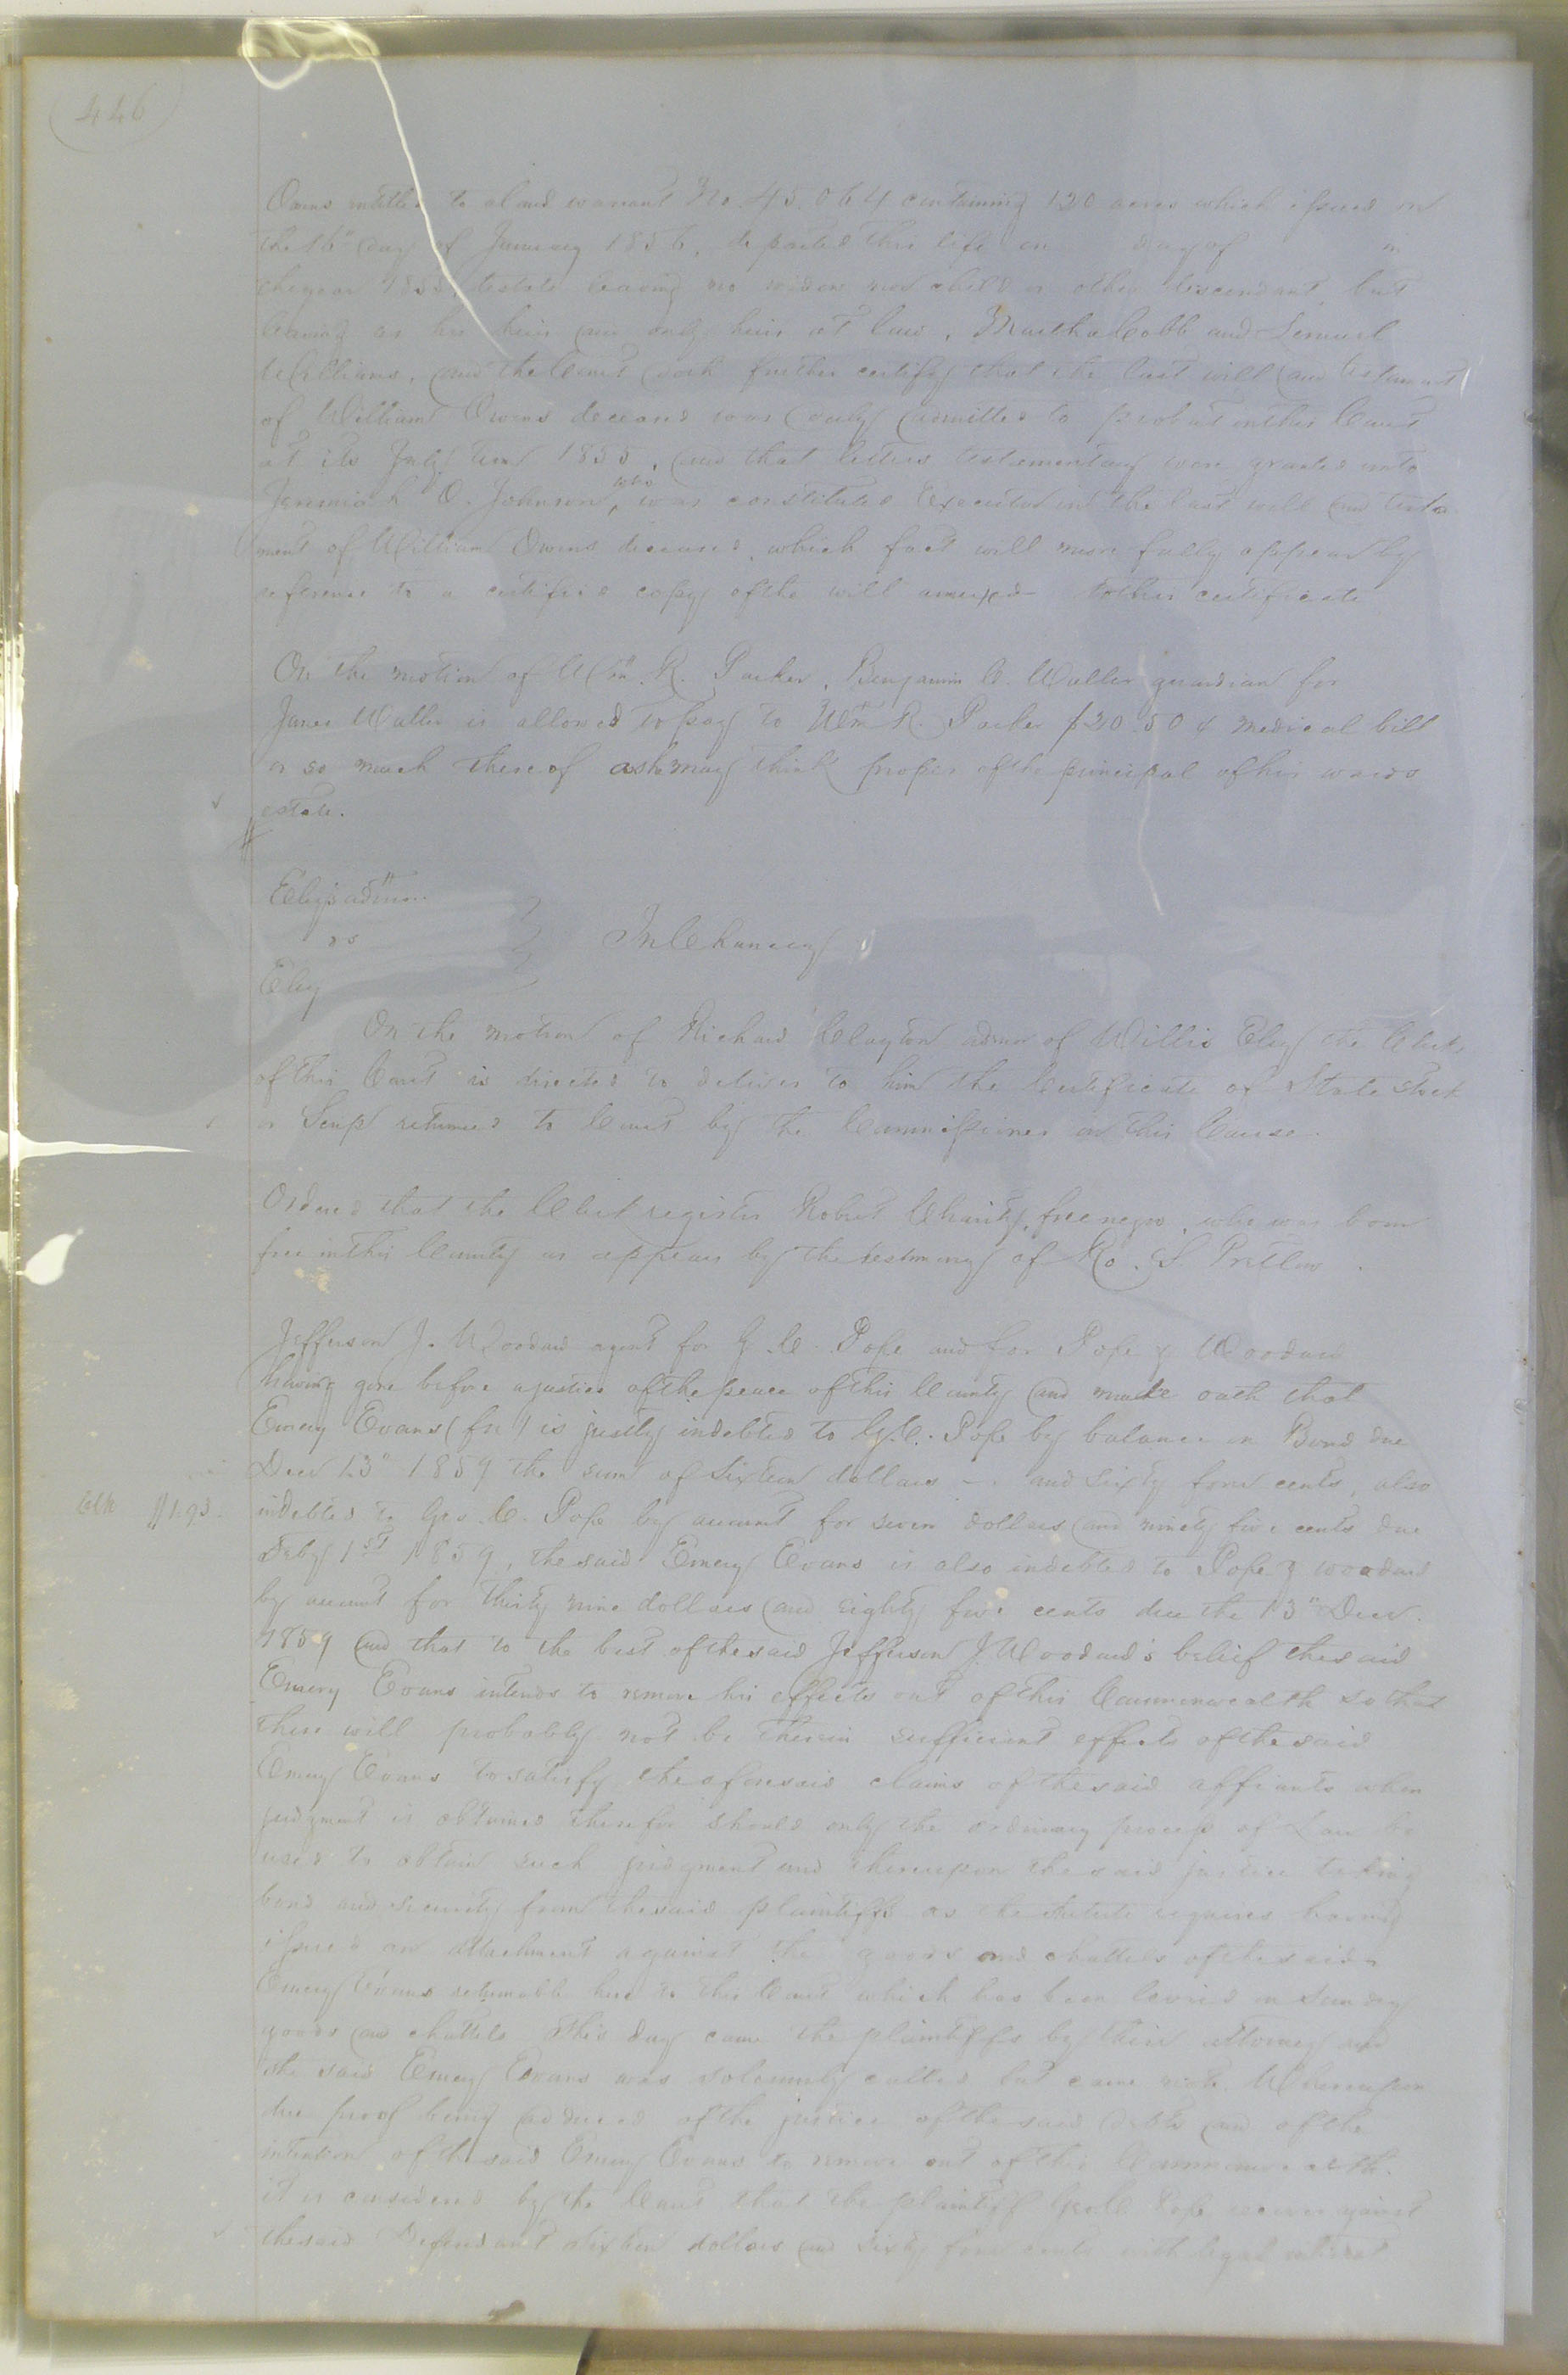 446
Owens entitled to aland warrant No. 45.064 containing 120 acres which issued on
the 16" day of January 1856, departed this life on day of in
theyear 1855, testate leaving no widow nor child or other descendant, but
leaving as his heir and only heirs at law, Martha Cobb and Lemuel
Williams, and the Court doth further certify that the last will and testament
of William Owens deceased was duly admitted to probat inthis Court
at its July term 1855, and that letters testamentary were granted unto
Jeremiah O. Johnson, who was constituted Executor in the last will and testa
ment of William Owens deceased, which fact will more fully appear by
reference to a certified copy ofthe will annexed tothis certificate
On the motion of Wm R. Parker, Benjamin W. Waller guardian for
James Waller is allowed to pay to Wm R. Parker $20.50 medical bill
or so much thereof ashemay think proper ofthe principal ofhis wards
estate.
Ely's admor.
vs
In Chancery
Ely
On the motion of Richard Clayton admor of Willis Ely the Clerk
of this Court is directed to deliver to him the Certificate of State Stock
or Scrip returned to Court by the Commissioner in this Cause.
Ordered that the Clerk register Robert Charity, free negro, who was born
free inthis County as appears by the testimony of Ro. S. Pretlow.
Jefferson J. Woodard agent for G. C. Pope and for Pope & Woodard
having gone before ajustice ofthe peace of this County and made oath that
Emery Evans (fn) is justly indebted to G.C. Pope by balance on Bond due
Decr 13" 1859 the sum of Sixteen dollars and sixty four cents, also
indebted to Geo. C. Pope by account for seven dollars and ninety five cents due
$1.93.
Feby 1st 1859, the said Emery Evans is also indebted to Pope & woodard
by account for thirty nine dollars and eighty five cents due the 13" Decr.
1859 and that to the best of thesaid Jefferson J. Woodard's belief thesaid
Emery Evans intends to remove his effects out of this Commonwealth so that
there will probably not be therein sufficient effects ofthe said
Emery Evans to satisfy the aforesaid claims of thesaid affiants when
judgment is obtained therefor should only the ordinary process of Law be
used to obtain such judgment and thereupon the said justice taking
bond and security from thesaid plaintiffs as the statute requires having
issued an attachment against the goods and chattels ofthesaid
Emery Evans returnable here to this Court which has been levied on sundry
goods and chattels. This day came the plaintiffs by their attorney and
the said Emery Evans was solemnly called but came not. Whereupon
due proof being adduced of the justice of the said debts and of the
intention of thesaid Emery Evans to remove out of this Commonwealth.
it is considered by the Court that the plaintiff Geo. C. Pope recover against
thesaid Defendant sixteen dollars and sixty four cents with legal interest